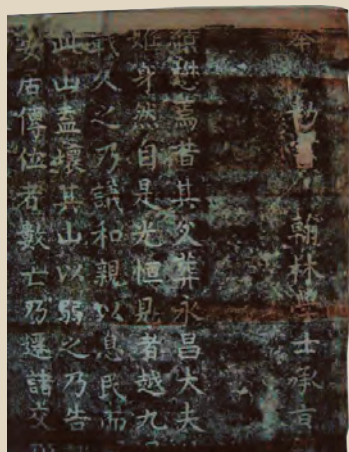 奉 敕 翰林學士承旨
績懋焉昔其父葬永昌大夫
妊身然自是光恒見者越九
久之乃議和親以息民而
此山盖壞其山以弱之乃告
安居傳位者數亡乃遷諸交